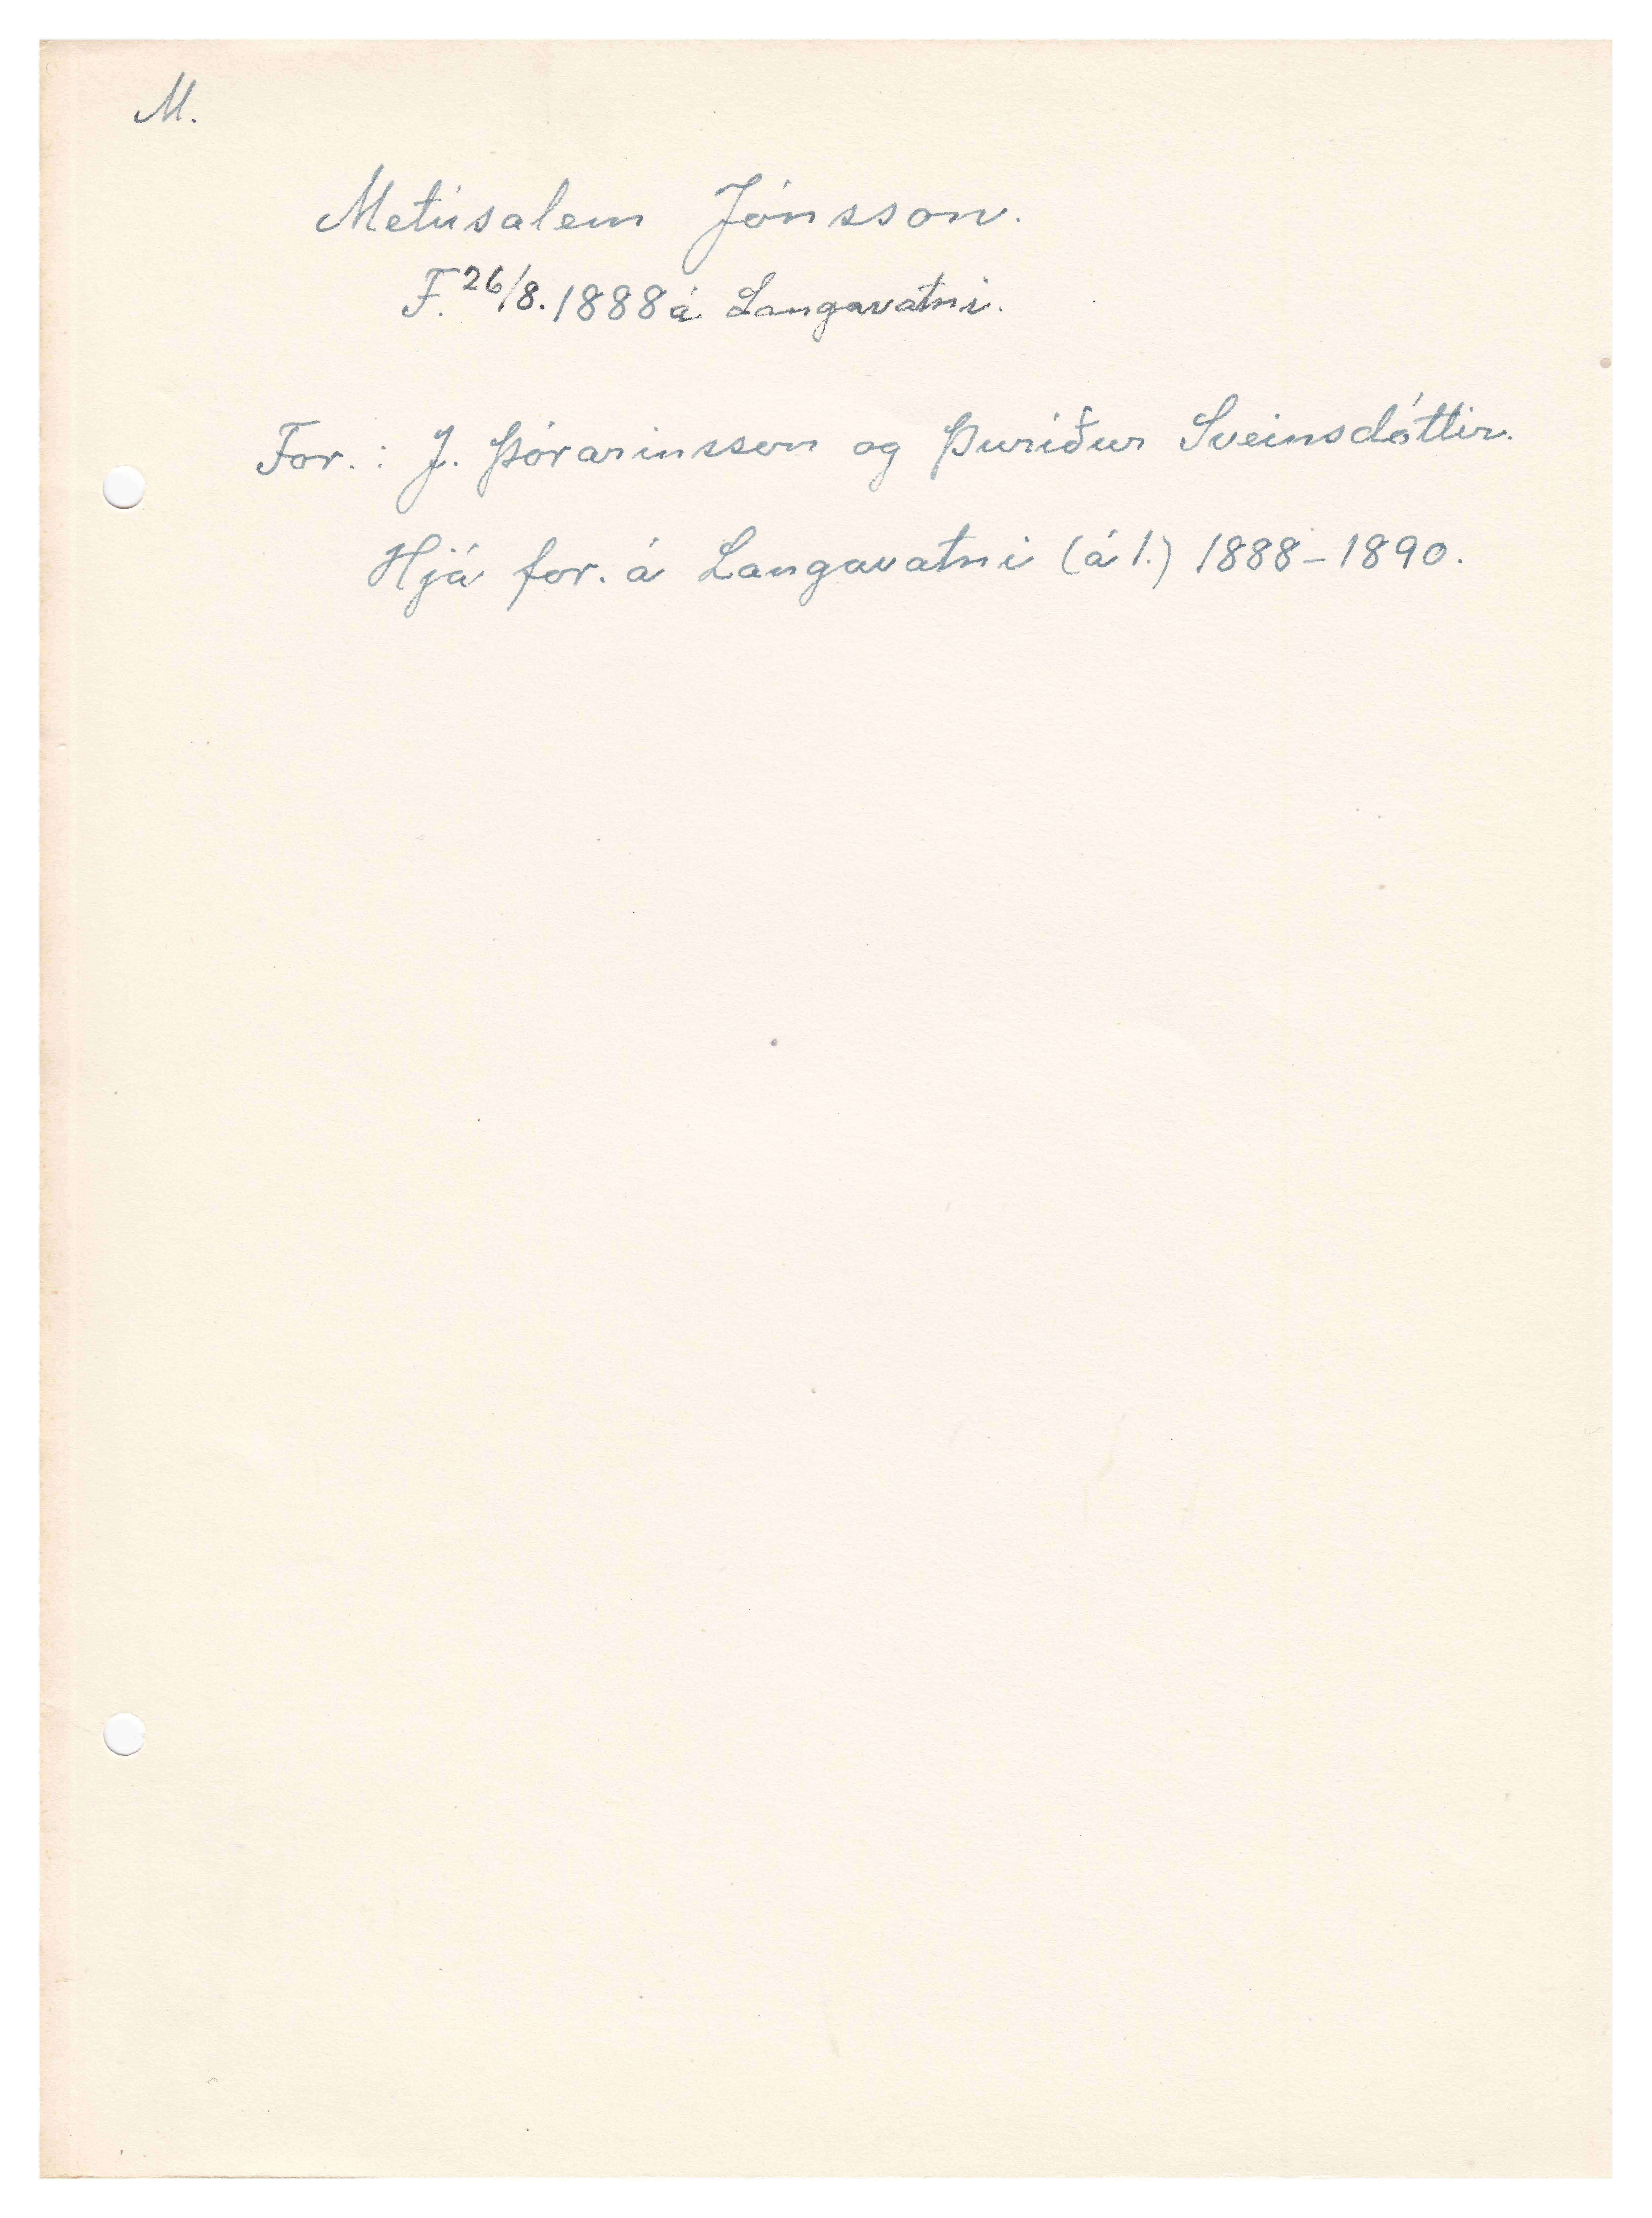 M.
Metúsalem Jónsson.
F. 26/8. 1888 á Langavatni.
For.: J. Þórarinsson og Þuríður Sveinsdóttir.
Hjá for. á Langavatni (á 1.) 1888-1890.